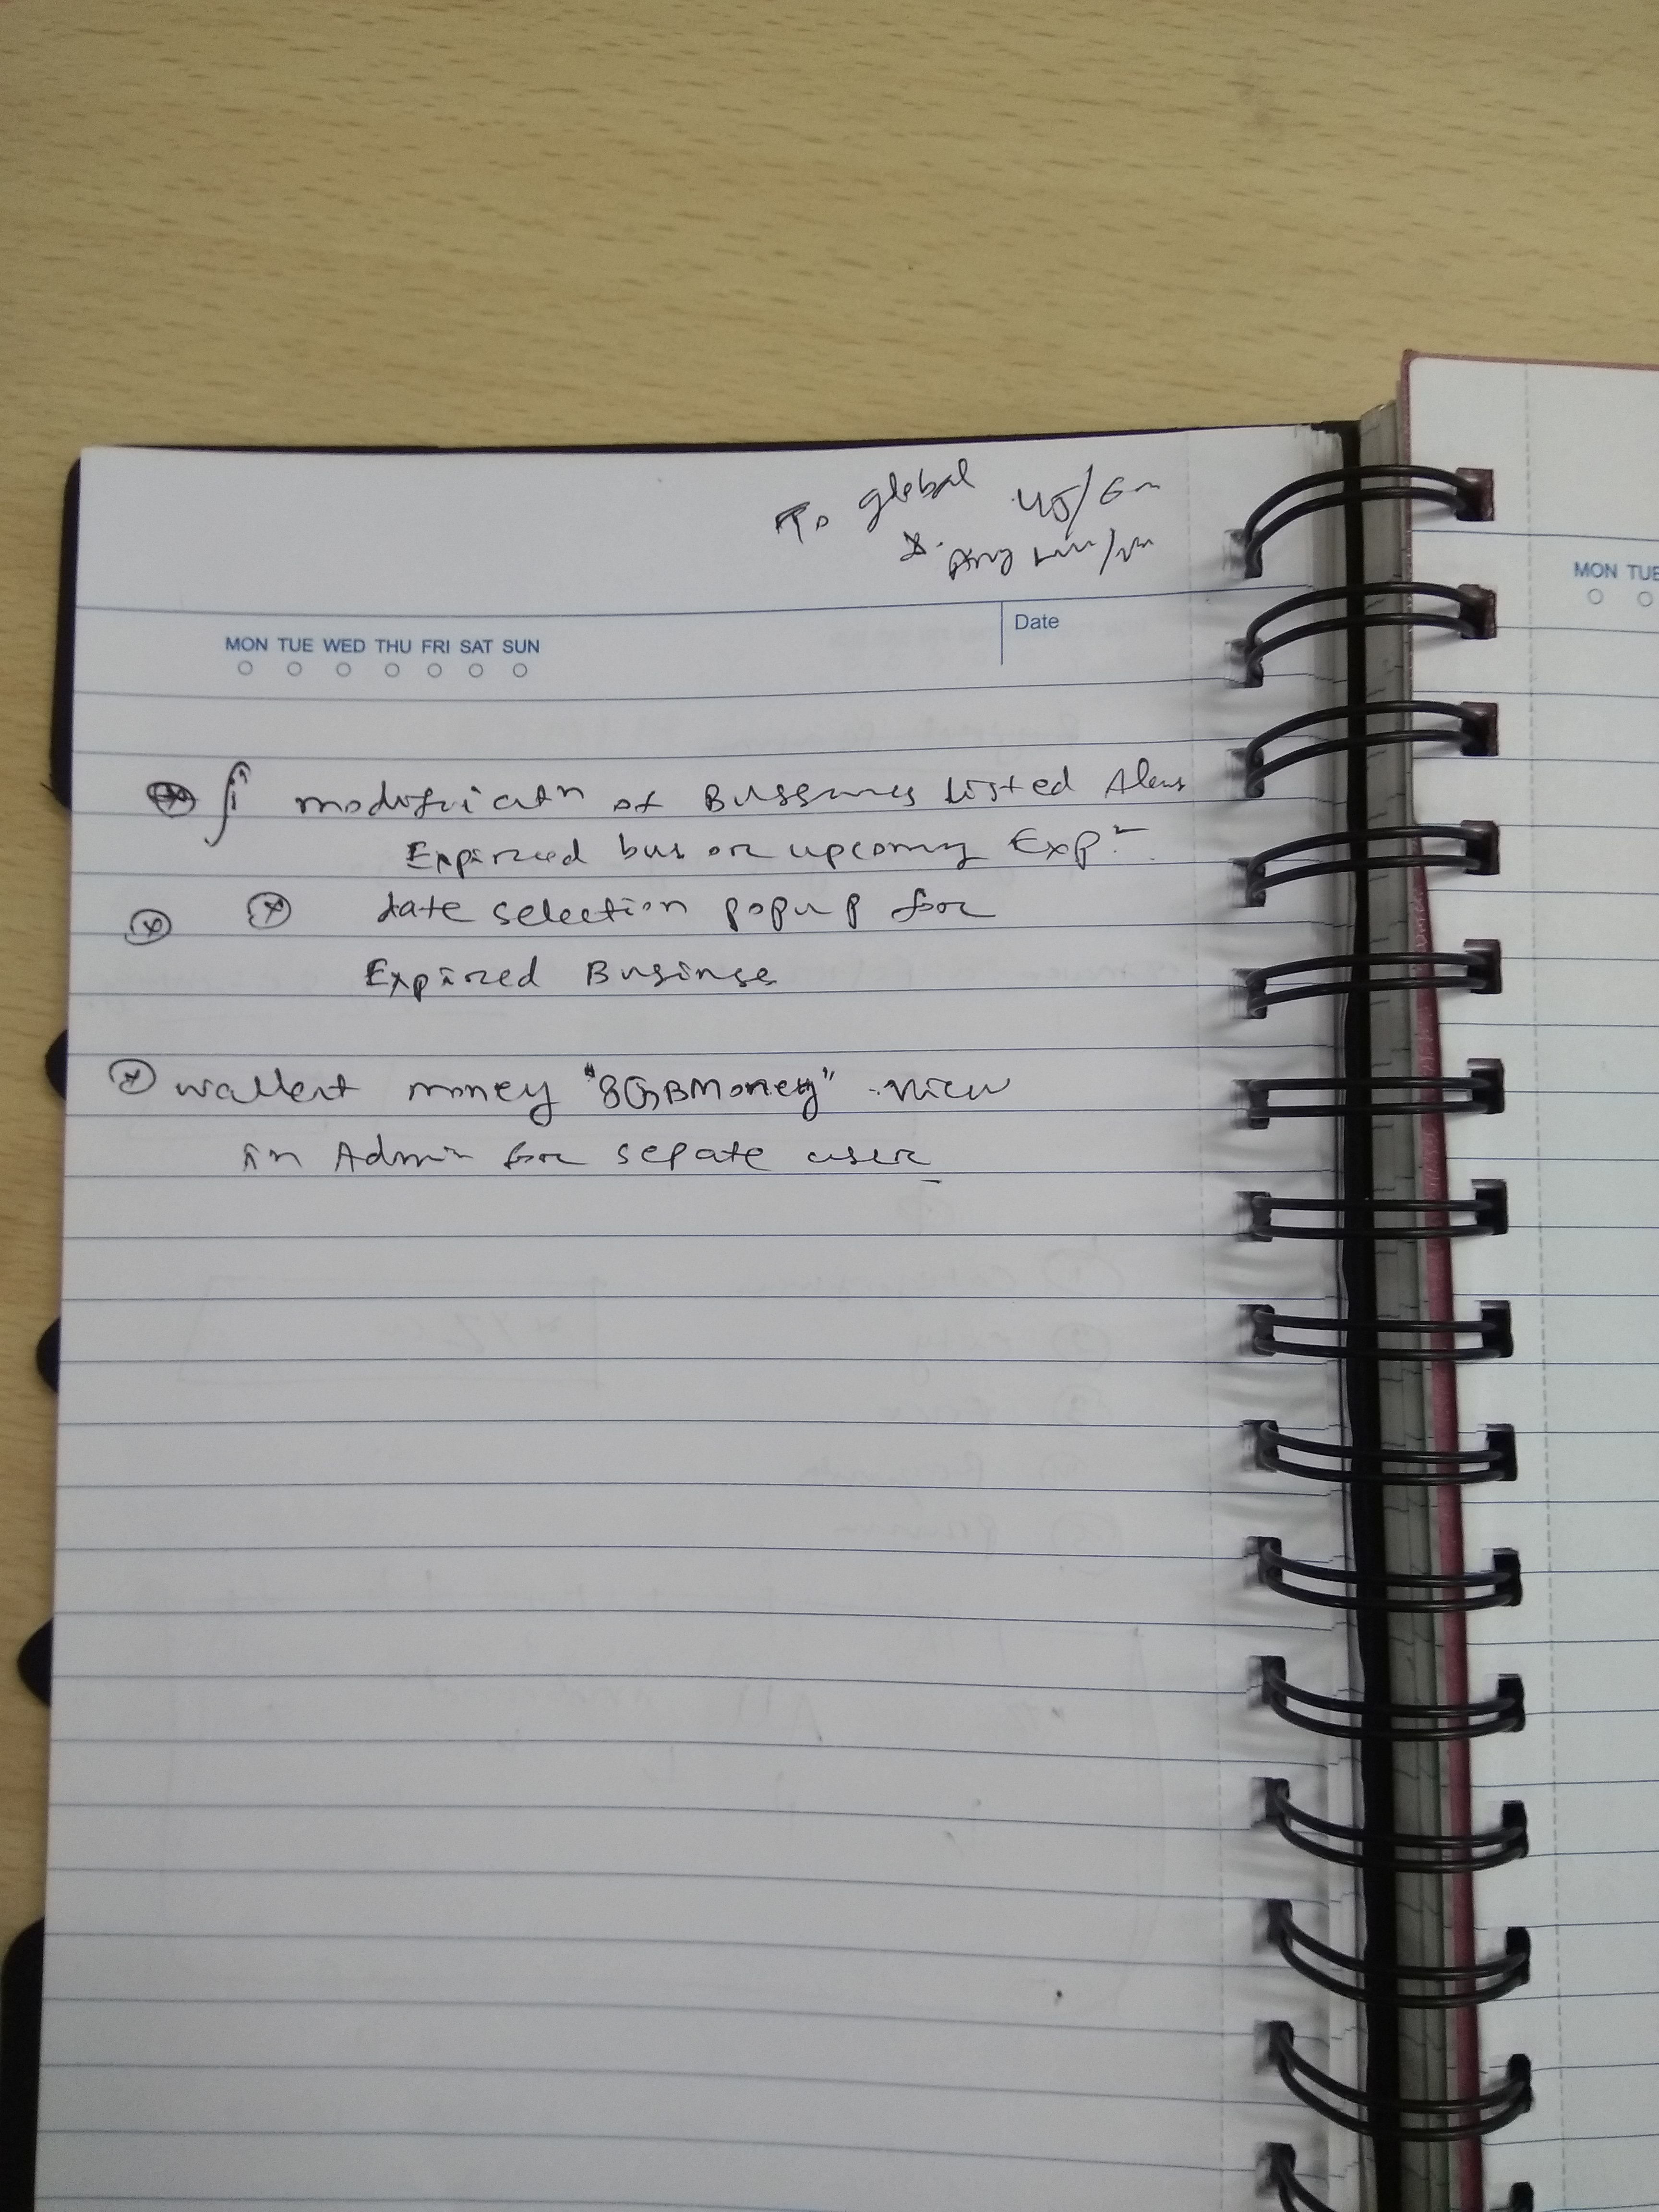 To global 45/6m
Any
Date
MON TUE WED THU FRI SAT SUN
MON TUE
modificatn of Bussines listed
Expired bus or upcoming Exp
date selection popup for
Expired Businse
wallert money "8GBMoney" view
in Admin for sepate user